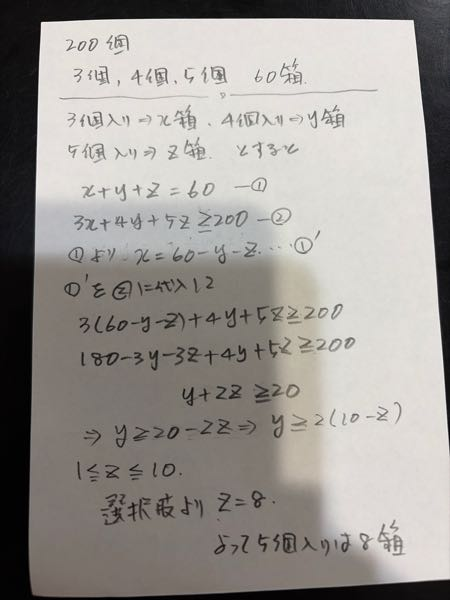 200個
3個, 4個, 5個 60箱.
3個入り⇒x箱. 4個入り⇒y箱
5個入り⇒z箱. とすると
x+y+z=60 ―①
3x+4y+5z≧200 ―②
①より x=60-y-z. …①'
①'を②に代入して
3(60-y-z)+4y+5z≧200
180-3y-3z+4y+5z≧200
y+2z≧20
⇒ y≧20-2z ⇒ y≧2(10-z)
1≦z≦10.
選択肢より z=8.
よって5個入りは8箱